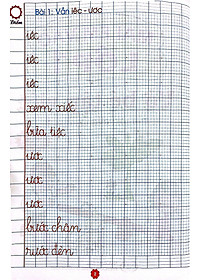 Bài 1: Vần iêc - ươc
iêc
iêc
iêc
xem xiếc
bữa tiệc
ươc
ươc
ươc
bước chân
rước đèn